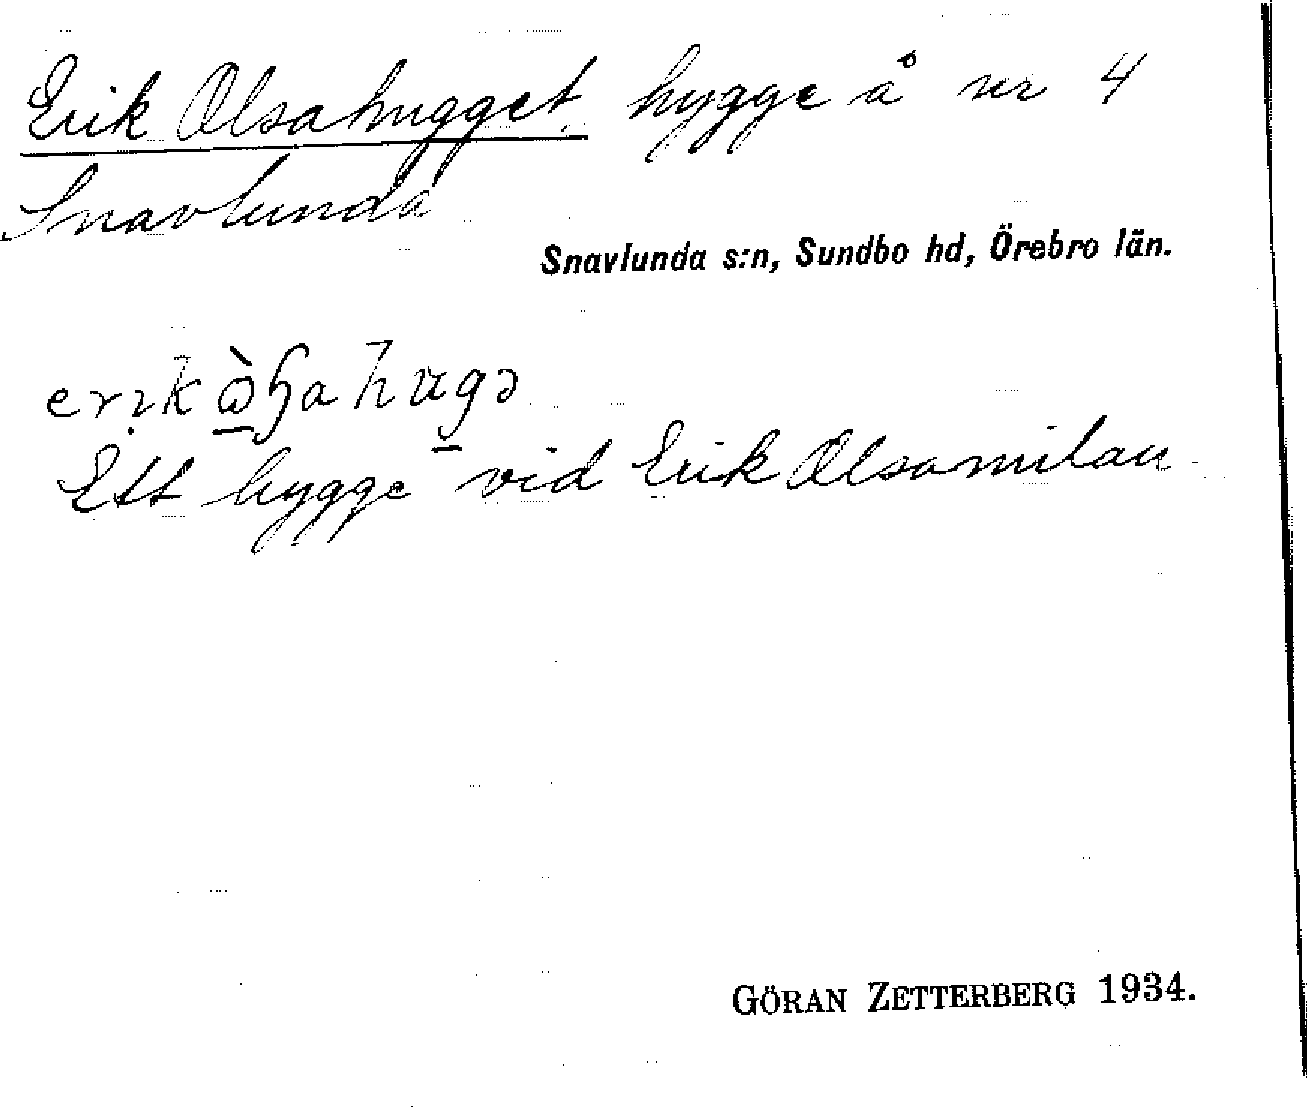 Erik Olsahugget hygge å nr 4
Snavlunda
Snavlunda s:n, Sundbo hd, Örebro län.
Ett hygge vid Erik Olsamilan
GÖRAN ZETTERBERG 1934.